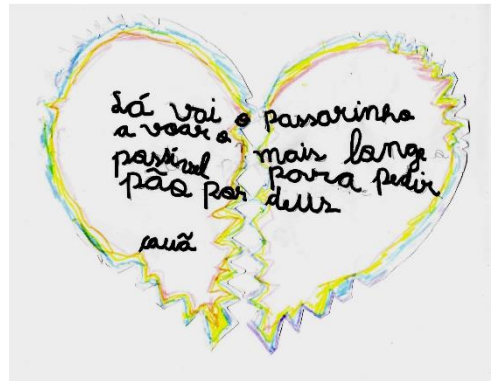 Lá vai o passarinho
a voar o mais longe
possível para pedir
pão por deus
cauã